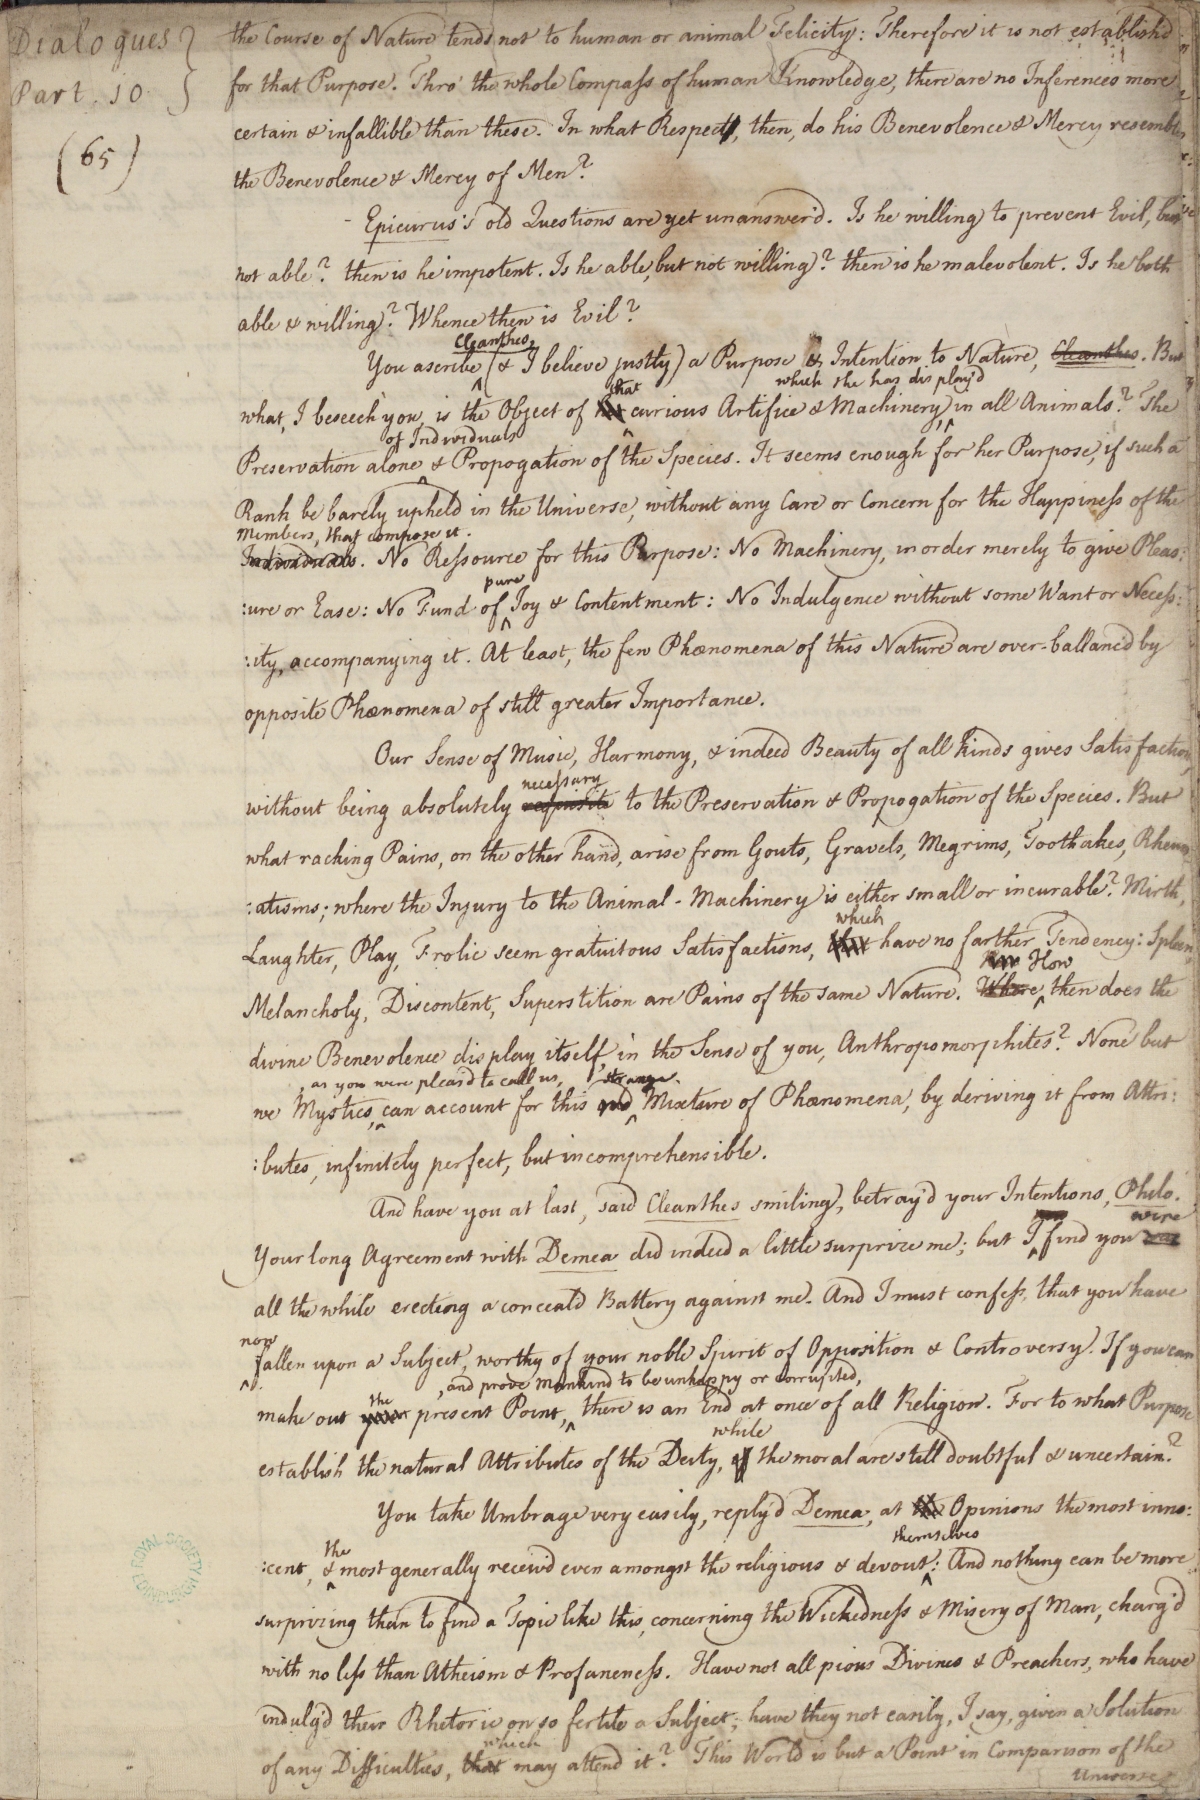 Dialogues }
Part. 10 }
(65)
the Course of Nature tends not to human or animal Felicity: Therefore it is not establish'd
for that Purpose. Thro' the whole Compass of human Knowledge, there are no Inferences more
certain & infallible than these. In what Respect, then, do his Benevolence & Mercy resemble
the Benevolence & Mercy of Men?
Epicurus's old Questions are yet unanswer'd. Is he willing to prevent Evil, but
not able? then is he impotent. Is he able, but not willing? then is he malevolent. Is he both
able & willing? Whence then is Evil?
Cleanthes,
You ascribe (& I believe justly) a Purpose & Intention to Nature, Cleanthes. But
that which she has display'd
what, I beseech you, is the Object of curious Artifice & Machinery, in all Animals? The
of Individuals
Preservation alone & Propogation of the Species. It seems enough for her Purpose, if such a
Rank be barely upheld in the Universe, without any Care or Concern for the Happiness of the
Members, that compose it.
Individuals. No Ressource for this Purpose: No Machinery, in order merely to give Pleas:
pure
:ure or Ease: No Fund of Joy & Contentment: No Indulgence without some Want or Necess:
:ity, accompanying it. At least, the few Phænomena of this Nature are over-ballanc'd by
opposite Phænomena of still greater Importance.
Our Sense of Music, Harmony, & indeed Beauty of all kinds gives Satisfaction,
necessary
without being absolutely requisite to the Preservation & Propogation of the Species. But
what racking Pains, on the other hand, arise from Gouts, Gravels, Megrims, Toothakes, Rheum
:atisms; where the Injury to the Animal-Machinery is either small or incurable? Mirth,
which
Laughter, Play, Frolic seem gratuitous Satisfactions, that have no farther Tendency: Spleen,
How
Melancholy, Discontent, Superstition are Pains of the same Nature. Where then does the
divine Benevolence display itself, in the Sense of you, Anthropomorphites? None but
, as you were pleas'd to call us, strange
we Mystics, can account for this Mixture of Phænomena, by deriving it from Attri:
:butes, infinitely perfect, but incomprehensible.
And have you at last, said Cleanthes smiling, betray'd your Intentions, Philo.
were
Your long Agreement with Demea did indeed a little surprize me; but I find you
all the while erecting a conceal'd Battery against me. And I must confess, that you have
now
fallen upon a Subject, worthy of your noble Spirit of Opposition & Controversy. If you can
the , and prove Mankind to be unhappy or corrupted,
make out your present Point, there is an End at once of all Religion. For to what Purpose
while
establish the natural Attributes of the Deity, if the moral are still doubtful & uncertain?
You take Umbrage very easily, reply'd Demea, at the Opinions the most inno:
the themselves
:cent, & most generally receiv'd even amongst the religious & devout: And nothing can be more
surprizing than to find a Topic like this, concerning the Wickedness & Misery of Man, charg'd
with no less than Atheism & Profaneness. Have not all pious Divines & Preachers, who have
indulg'd their Rhetoric on so fertile a Subject; have they not easily, I say, given a Solution
which
of any Difficulties, that may attend it? This World is but a Point in Comparison of the
Universe